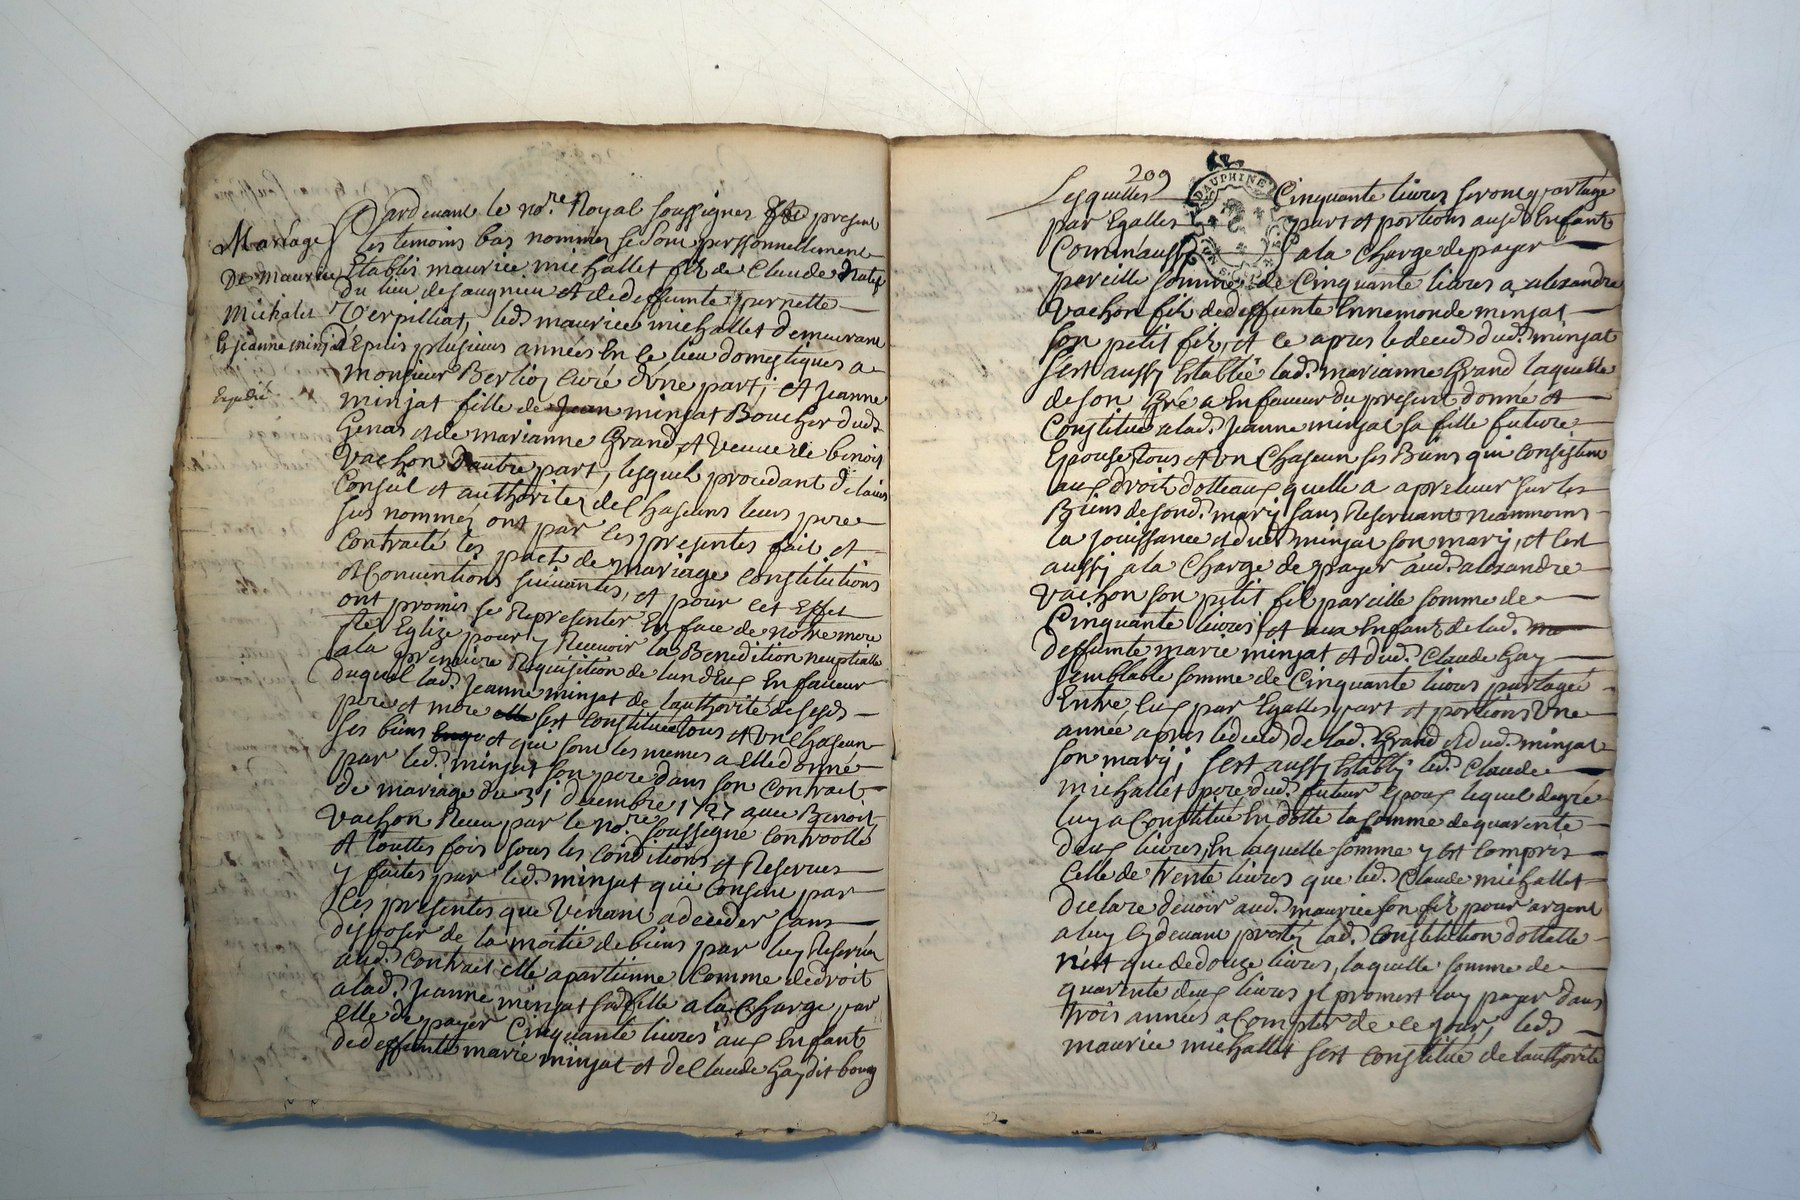 Mariage
De Maurice
Michalet
Et jeanne minjat
Expedié
Pardevant le no.re Royal soussignez et present
les temoins bas nommez se sont personnellement
Etablis maurice michallet fils de Claude natif
du lieu de saugnieu et de deffunte pernette
Terpilliat, led. maurice michallet demeurant
depuis plusieurs années En ce lieu domestiques a
monsieur Berlioz curé d'une part; et Jeanne
minjat fille de Jean minjat Boucher dud.
Genas et de marianne Grand et veuve de benoit
vachon D'autre part, lesquel procedant de l'avis
Conseil et authoritez de Chascuns leurs pere
sus nommez ont par les presentes fait et
Contracté les pact de mariage constitutions
et Conventions suivantes, et pour cet Effet
ont promis se Representer En face de notre mere
ste Eglize pour y Recevoir la Benedition neuptialle
a la premiere Requisition de l'un d'Eux En faveur
duquel lad. Jeanne minjat de l'authorité de sesd.
pere et mere elle s'est constituée tous et un Chascun
ses biens et qui sont les memes a elle donné
par led. minjat son pere dans son Contrait
de mariage du 31 decembre 1727 avec Benoit
vachon Receu par le no.re soussigné controollé
et touttes fois sous les conditions et Reserves
y faites par led. minjat qui consent par
les presentes que venant a deceder sans
disposer de la moitié de biens par luy Reservés
aud. contrait elle apartienne Comme de droit
a lad. Jeanne minjat sad. fille a la charge par
elle de payer Cinquante livres aux Enfant
de deffunte marie minjat et de Claude Gay dit bourg
209
DAUPHINE
Lesquelles Cinquante livres seront partagé
par Egalles part et portions ausd. Enfant
Comm'aussy a la Charge de payer
pareille somme de Cinquante livres a alexandre
vachon fils de deffunte Ennemonde minjat
son petit fils, et ce apres le deced dud. minjat
s'est aussy Establie lad. marianne Grand laquelle
de son Gré a En faveur du present donné et
Constitué a lad. Jeanne minjat sa fille future
Epouse tous et un Chascun ses Biens qui consistent
aux droits dotteaux quelle a a prelever sur les
Biens de sond. mary sans Reservant neanmoins
la jouissance et dud. minjat son mary, et c'est
aussy a la Charge de payer aud. alexandre
vachon son petit fils pareille somme de
Cinquante livres et aux Enfant de lad.
deffunte marie minjat et dud. Claude Gay
semblable somme de Cinquante livres partagée
Entre Eux par Egalles part et portions Une
année apres le deced de lad. Grand et dud. minjat
son mary; s'est aussy Etably led. Claude
michallet pere dud. futeur Epoux lequel de gré
luy a Constitué En dotte la somme de quarente
deux livres, En laquelle somme y est compris
Celle de trente livres que led. Claude michallet
declare devoir aud. maurice son fils pour argent
a luy cy devant presté, lad. constitution dottalle
n'est que de douze livres, laquelle somme de
quarente deux livres jl promest luy payer dans
trois années a Compter de ce jour, led.
maurice michallet s'est constitué de l'authorité